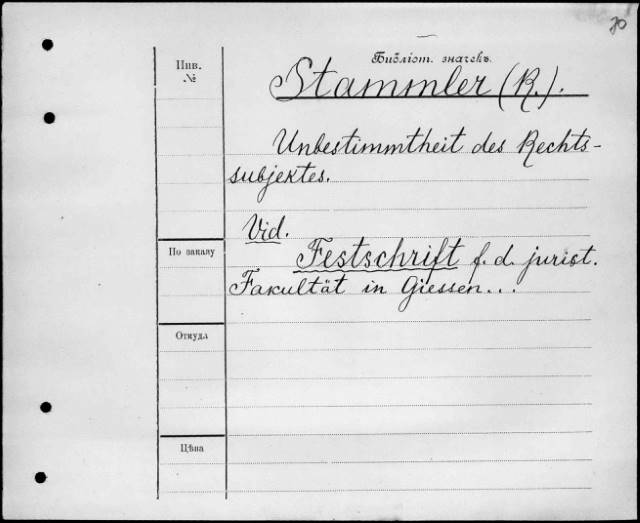 70
Библіот. значекъ.
Инв.
№
Stammler (R.).
Unbestimmtheit des Rechts-
subjektes.
Vid.
По заказу
Festschrift f. d. jurist.
Fakultät in Giessen...
Откуда
Цѣна